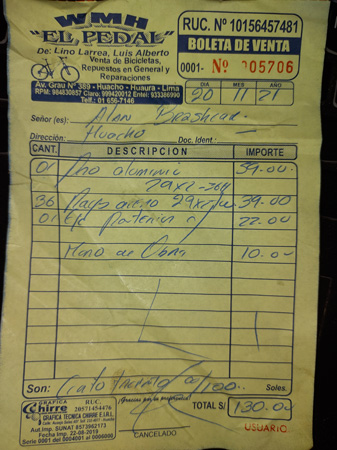 WMH
"EL PEDAL"
De: Lino Larrea, Luis Alberto
Venta de Bicicletas,
Repuestos en General y
Reparaciones
Av. Grau Nº 389 - Huacho - Huaura - Lima
RPM: 984830857 Claro: 999420012 Entel: 933386990
Telf.: 01 656-7146
RUC. Nº 10156457481
BOLETA DE VENTA
0001- Nº 005706
DIA MES AÑO
20 11 21
Señor (es): Alan
Dirección: Huacho Doc. Ident.
CANT. DESCRIPCION IMPORTE
01 Aro aluminio 39.00
29x2
36 Rayo acero 29 39.00
01 Eje Posterior 22.00
Mano de Obra 10.00
Son: Ciento treinta 00/100 Soles.
¡Gracias por su preferencia!
GRAFICA
Chirre
RUC.
20571454476
GRAFICA TECNICA CHIRRE E.I.R.L.
Aut. Imp. SUNAT 8573962173
Fecha Imp. 22-08-2019
Serie 0001 del 0004001 al 0006000
CANCELADO
TOTAL S/ 130.00
USUARIO